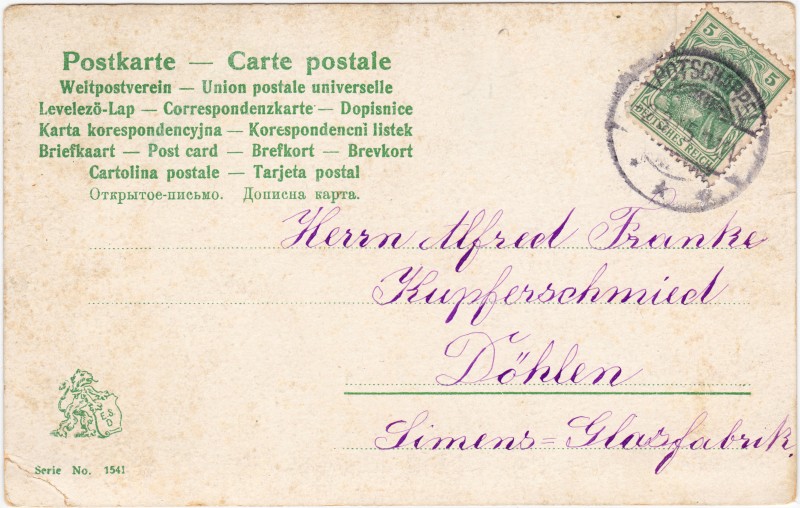 Postkarte — Carte postale
Weltpostverein — Union postale universelle
Levelező-Lap — Correspondenzkarte — Dopisnice
Karta korespondencyjna — Korespondencni listek
Briefkaart — Post card — Brefkort — Brevkort
Cartolina postale — Tarjeta postal
Открытое-письмо. Дописна карта.
5 5
DEUTSCHES REICH
POTSCHAPPEL
Herrn Alfred Franke
Kupferschmied
Döhlen
Simens=Glasfabrik.
S
E D
Serie No. 1541